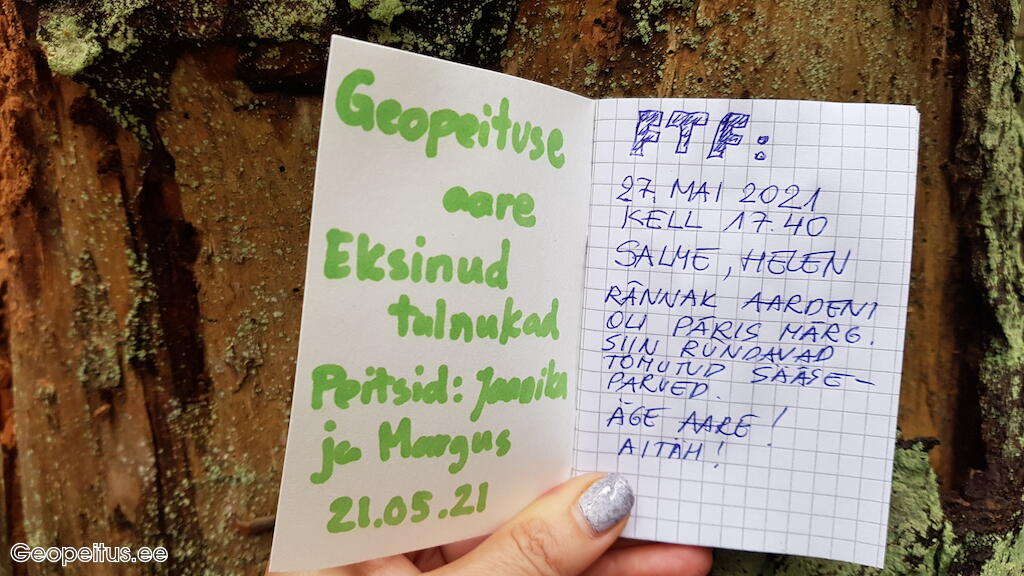 Geopeituse
aare
Eksinud
talnukad
Peitsid: Jaanika
ja Margus
21.05.21
FTF:
27. MAI 2021
KELL 17.40
SALME, HELEN
RÄNNAK AARDENI
OLI PÄRIS MÄRG.
SIIN RÜNDAVAD
TOHUTUD SÄÄSE-
PARVED.
ÄGE AARE!
AITÄH!
Geopeitus.ee